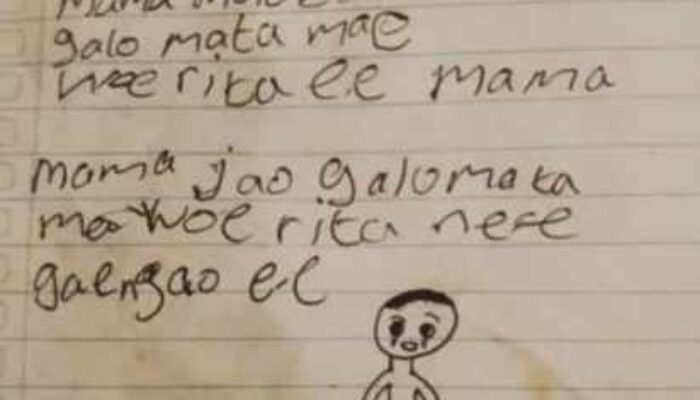 mama
galo mata mae
woe rita ee mama
mama jao galomata
ma woe rita nere
gaengao ee